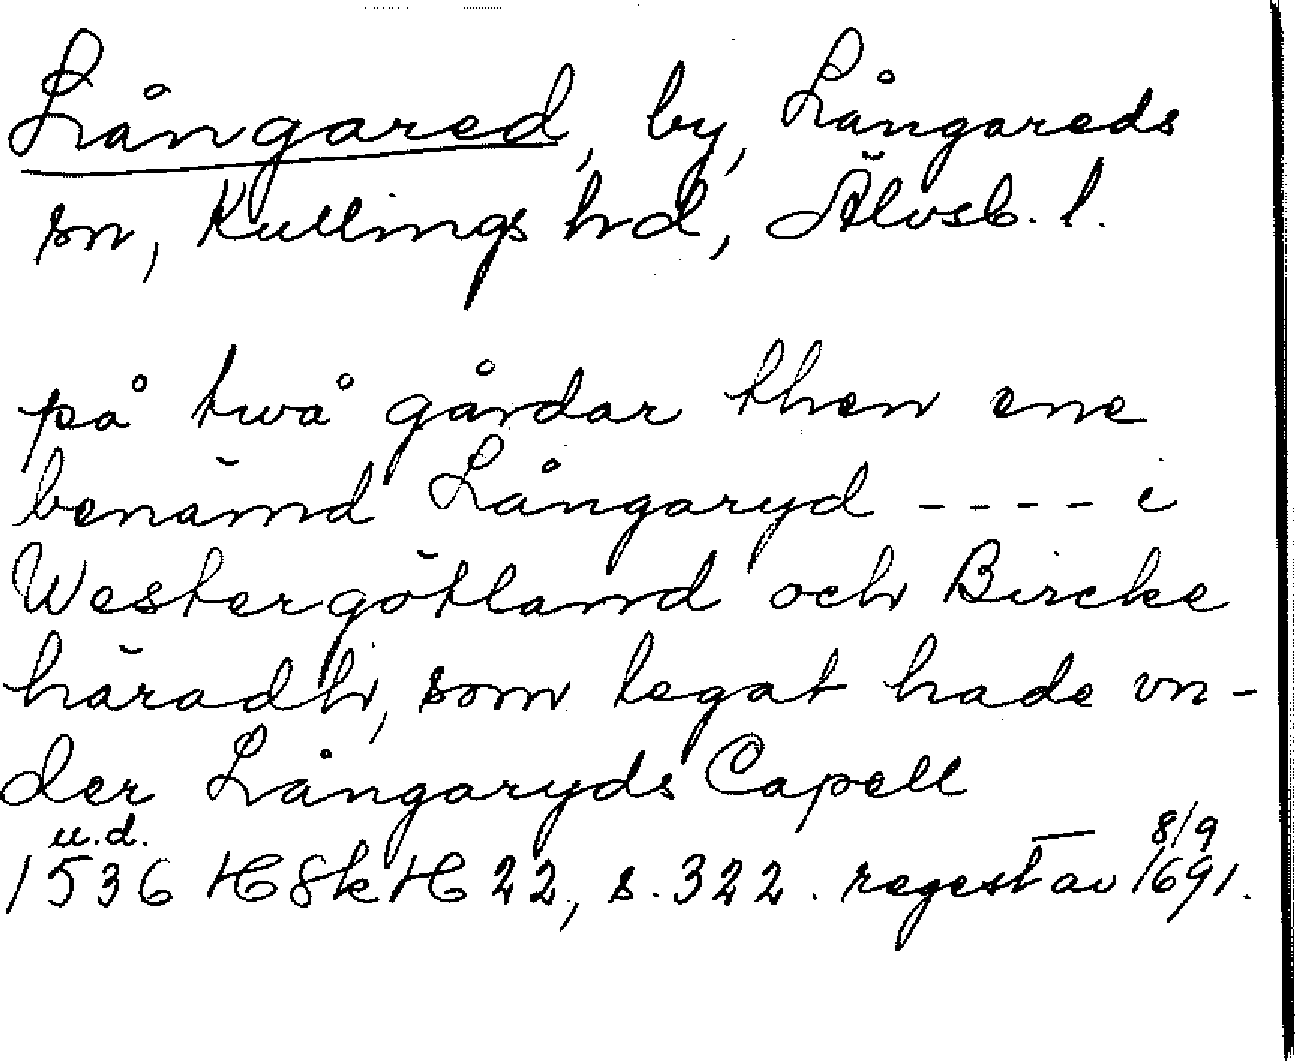 Långared, by, Långareds
sn, Kullings hd, Älvsb. l.
på två gårdar then ene
benämd Långaryd ---- i
Westergötland och Bircke
häradh, som legat hade vn-
der Långaryds Capell
u.d. 8/9
1536 HSkH 22, s. 322. regest av 1691.